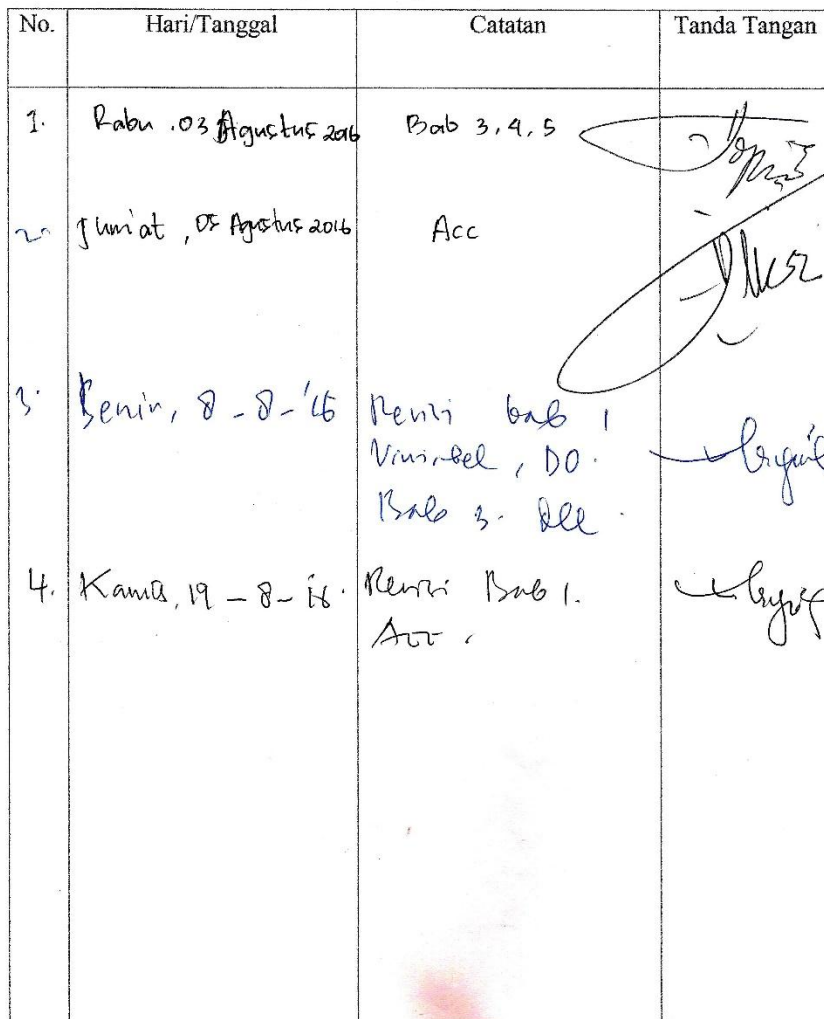 No. Hari/Tanggal Catatan Tanda Tangan
1. Rabu . 03 Agustus 2016 Bab 3, 4, 5
2. Jum'at , 05 Agustus 2016 Acc
3. Senin, 8 - 8 - '16 Revisi bab 1
Variabel , DO .
Bab 3. dll .
4. Kamis, 19 - 8 - 16 . Revisi Bab 1.
Acc .